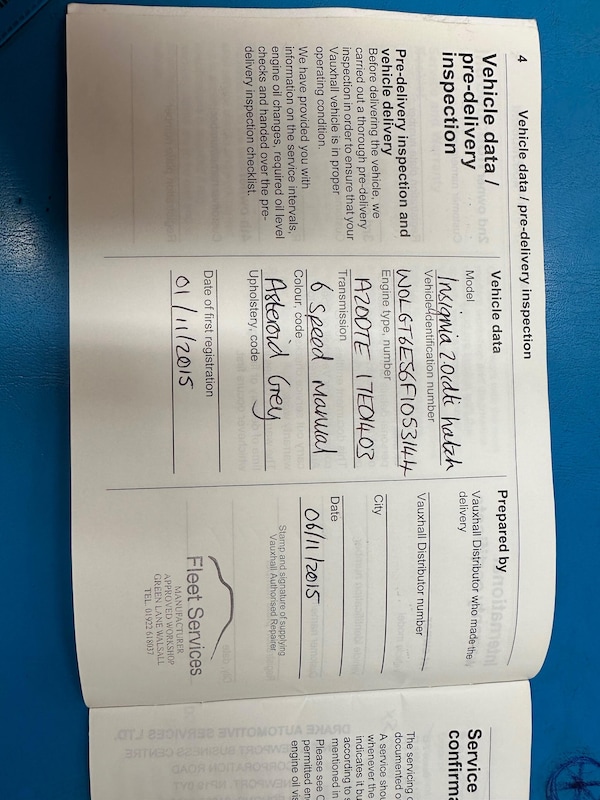 4
Vehicle data / pre-delivery inspection
Vehicle data /
pre-delivery
inspection
Pre-delivery inspection and
vehicle delivery
Before delivering the vehicle, we
carried out a thorough pre-delivery
inspection in order to ensure that your
Vauxhall vehicle is in proper
operating condition.
We have provided you with
information on the service intervals,
engine oil changes, required oil level
checks and handed over the pre-
delivery inspection checklist.
Vehicle data
Model
Insignia 2.0cdti hatch
Vehicle identification number
W0LGT6ES6F1053144
Engine type, number
A20DTE 17E01403
Transmission
6 speed manual
Colour, code
Asteroid Grey
Upholstery, code
Date of first registration
01/11/2015
Prepared by
Vauxhall Distributor who made the
delivery
Vauxhall Distributor number
City
Date
06/11/2015
Stamp and signature of supplying
Vauxhall Authorised Repairer
Fleet Services
MANUFACTURER
APPROVED WORKSHOP
GREEN LANE WALSALL
TEL. 01922 618037
Service
The servicing
A service
whenever the
indicates
according to
mentioned in
Please see
permitted
engine oil